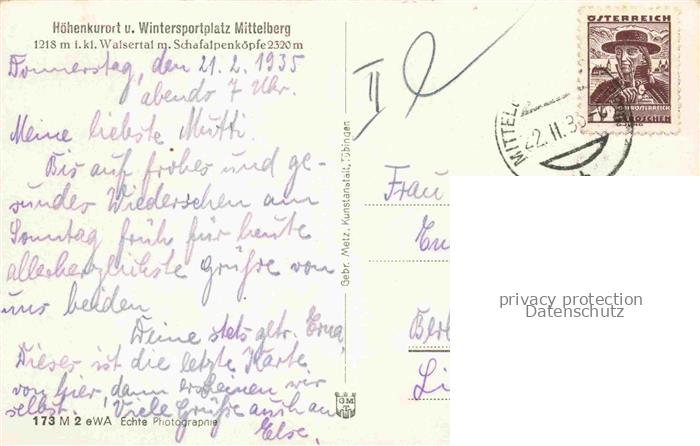 Höhenkurort u. Wintersportplatz Mittelberg
1218 m i. kl. Walsertal m. Schafalpenköpfe 2320 m
Donnerstag, den 21. 2. 1935
abends 7 Uhr.
Meine liebste Mutti.
Bis auf frohes und ge-
sundes Wiedersehen am
Sonntag früh für heute
allerherzlichste Grüße von
uns beiden
Deine stets getr. Erna
Dieser ist die letzte Karte
von hier, dann erscheinen wir
selbst. Viele Grüße auch an
Else.
173 M 2 eWA Echte Photographie
Gebr. Metz, Kunstanstalt, Tübingen
GM
II
ÖSTERREICH
GROSCHEN
MITTEL
22. II. 35
Frau
Ber
Li
privacy protection
Datenschutz